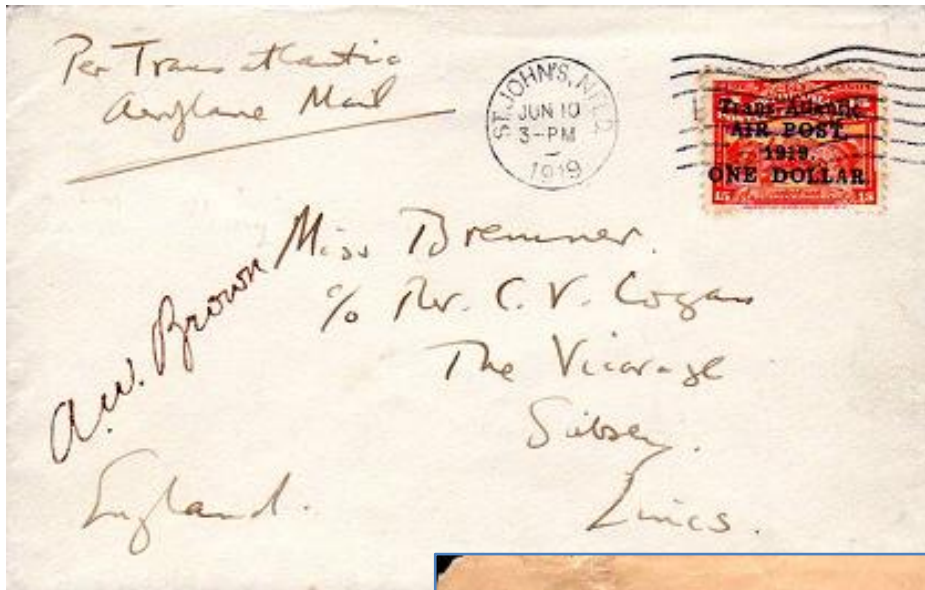 Per Trans atlantic
Aeroplane Mail
ST. JOHN'S, NFLD.
JUN 10
3-PM
1919
Trans-Atlantic
AIR POST,
1919.
ONE DOLLAR
Miss Bremner.
c/o Rev. C. V. Cogan
The Vicarage
Sibsey.
Lincs.
England.
A.W. Brown